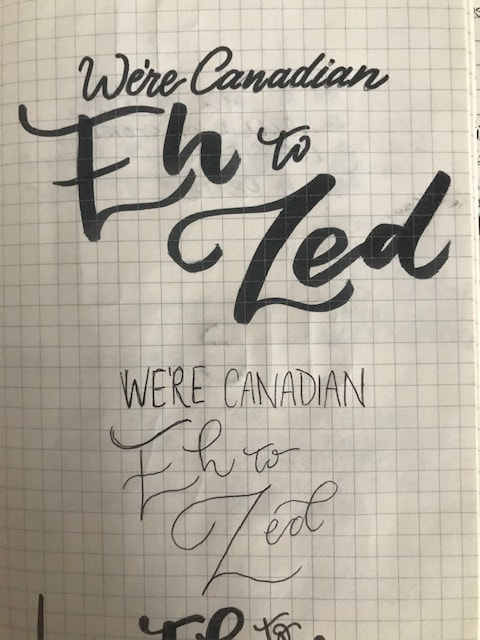 We're Canadian
Eh to
Zed
WE'RE CANADIAN
Eh to
Zed